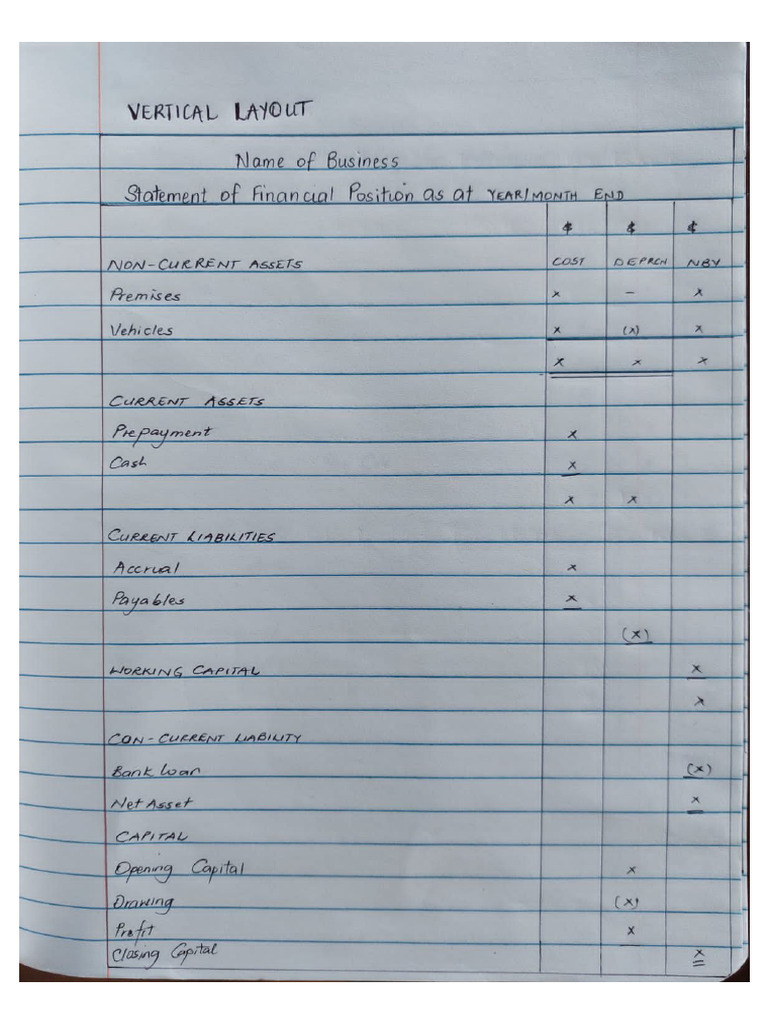 VERTICAL LAYOUT
Name of Business
Statement of Financial Position as at YEAR/MONTH END
$ $ $
NON-CURRENT ASSETS COST DEPRCN NBV
Premises x – x
Vehicles x (x) x
x x x
CURRENT ASSETS
Prepayment x
Cash x
x x
CURRENT LIABILITIES
Accrual x
Payables x
(x)
WORKING CAPITAL x
x
CON-CURRENT LIABILITY
Bank loan (x)
Net Asset x
CAPITAL
Opening Capital x
Drawing (x)
Profit x
Closing Capital x